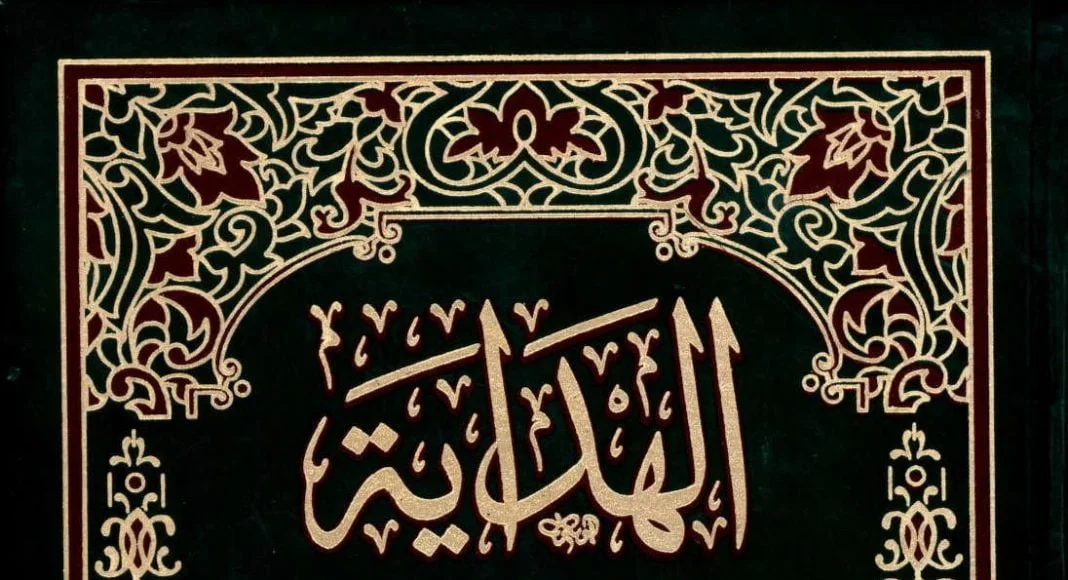 الهداية